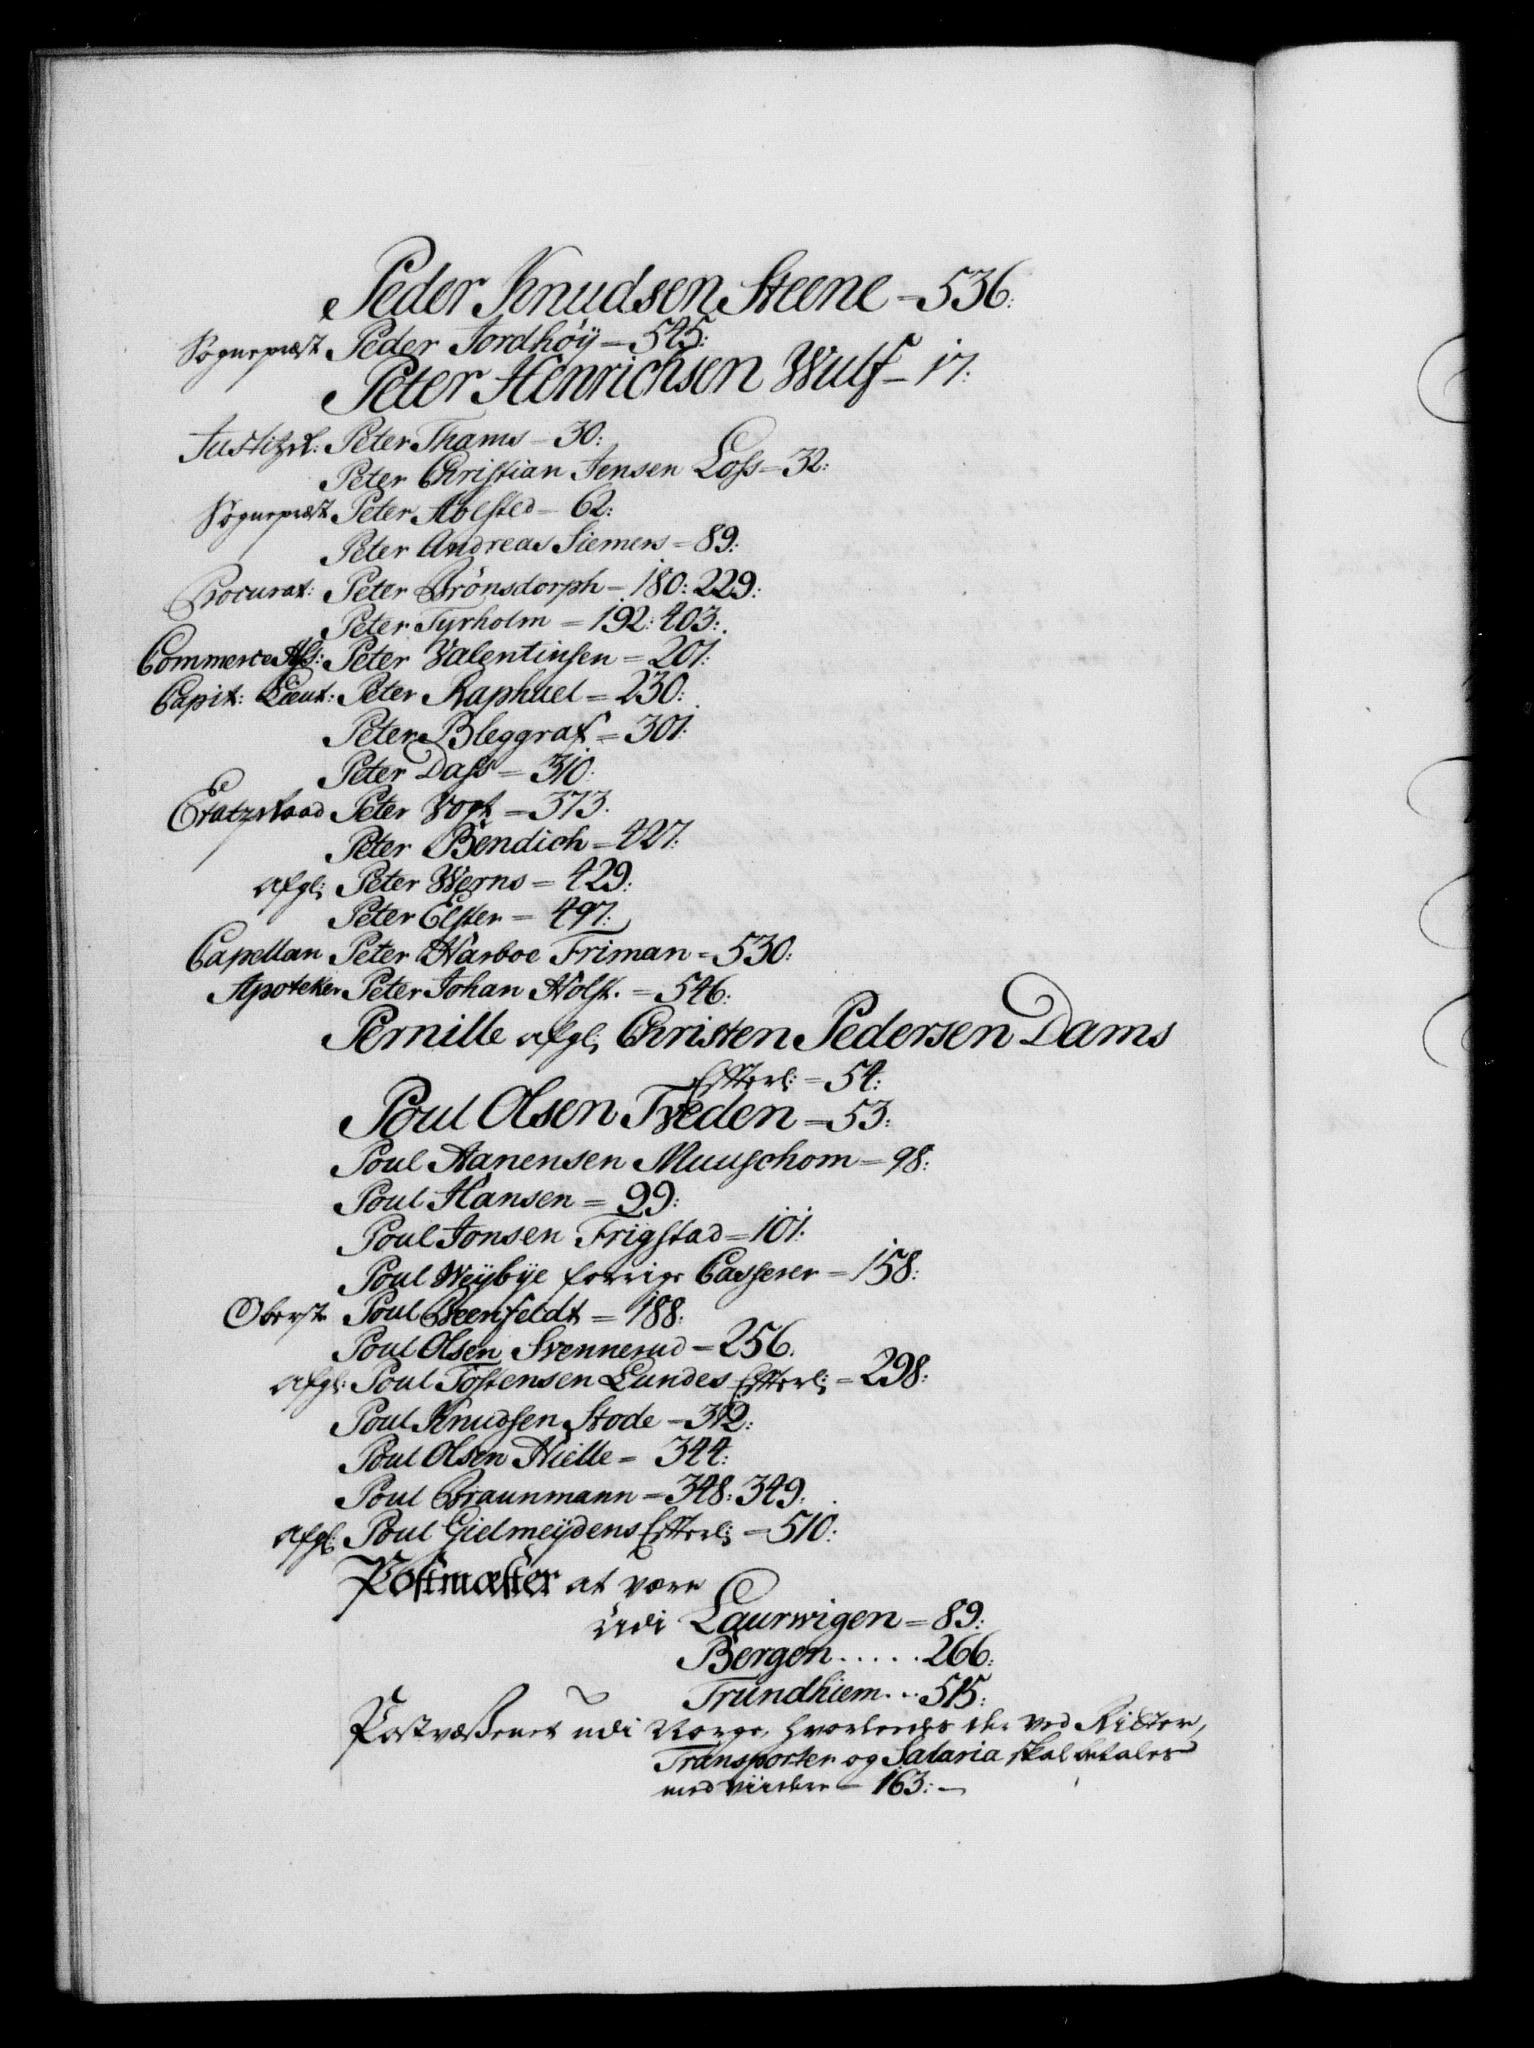 Peder Knudsen Steene - 536:
Sognepræst Peder Jordhöÿ - 545:
Peter Henrichsen Wulf - 17:
Justitzr: Peter Thams - 30:
Peter Christian Jensen Loss - 32:
Sognepræst Peter Abelsted - 62:
Peter Andreas Siemers = 89:
Procurat: Peter Brönsdorph - 180: 229:
Peter Tyrholm = 192: 403:
Commerce Ass: Peter Valentinsen = 201:
Capit: Lieut: Peter Raphael = 230:
Peter Bleggraf = 301:
Peter Dass = 310:
Etatzraad Peter Vogt = 373.
Peter Bendich = 427:
afgl: Peter Werns = 429:
Peter Elster = 497:
Capellan Peter Harboe Friman = 530:
Apoteker Peter Johan Holst. = 546:
Pernille afgl: Christen Pedersen Dams
Efterl: = 54:
Poul Olsen Tveden = 53:
Poul Aanensen Muuschom = 98:
Poul Hansen = 99:
Poul Jonsen Frigstad = 101:
Poul Weÿbÿe forrige Casserer = 158:
Oberst Poul Beenfeldt = 188:
Poul Olsen Svennerud = 256.
afgl: Poul Tostensen Lundes Efterl: = 298:
Poul Knudsen Stode - 312:
Poul Olsen Hielle = 344:
Poul Braunmann = 348: 349:
afgl: Poul Gielmeÿdens Efterl: = 510:
Postmæster at være
udi Laurwigen = 89:
Bergen ..... 266:
Trundhiem ... 515:
Postvæsenet udi Norge, hvorledes der ved Ritter,
Transporter og Salaria skal betales
med viidere = 163: -